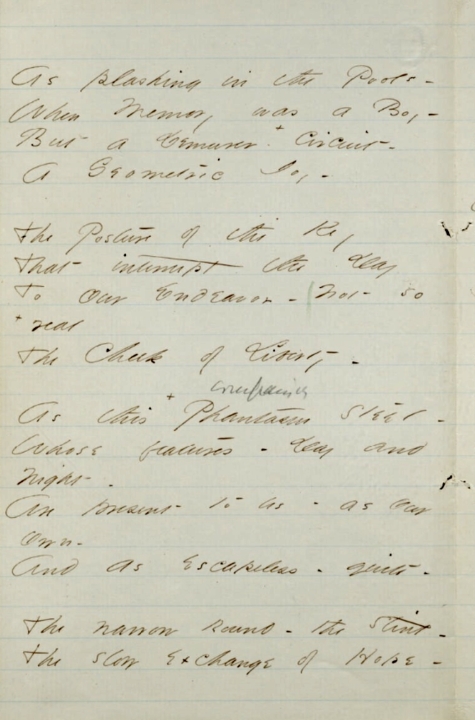 As plashing in the Pools -
When Memory was a Boy -
But a Demurer + Circuit -
A Geometric Joy -
The Posture of the Key
That interrupt the Day
To Our Endeavor - Not so
+ real
The Cheek of Liberty -
As this + Phantasm Steel -
Whose features - Day and
Night -
Are present to us - as Our
Own -
And as escapeless - quite -
The narrow Round - the Stint -
The slow exchange of Hope -